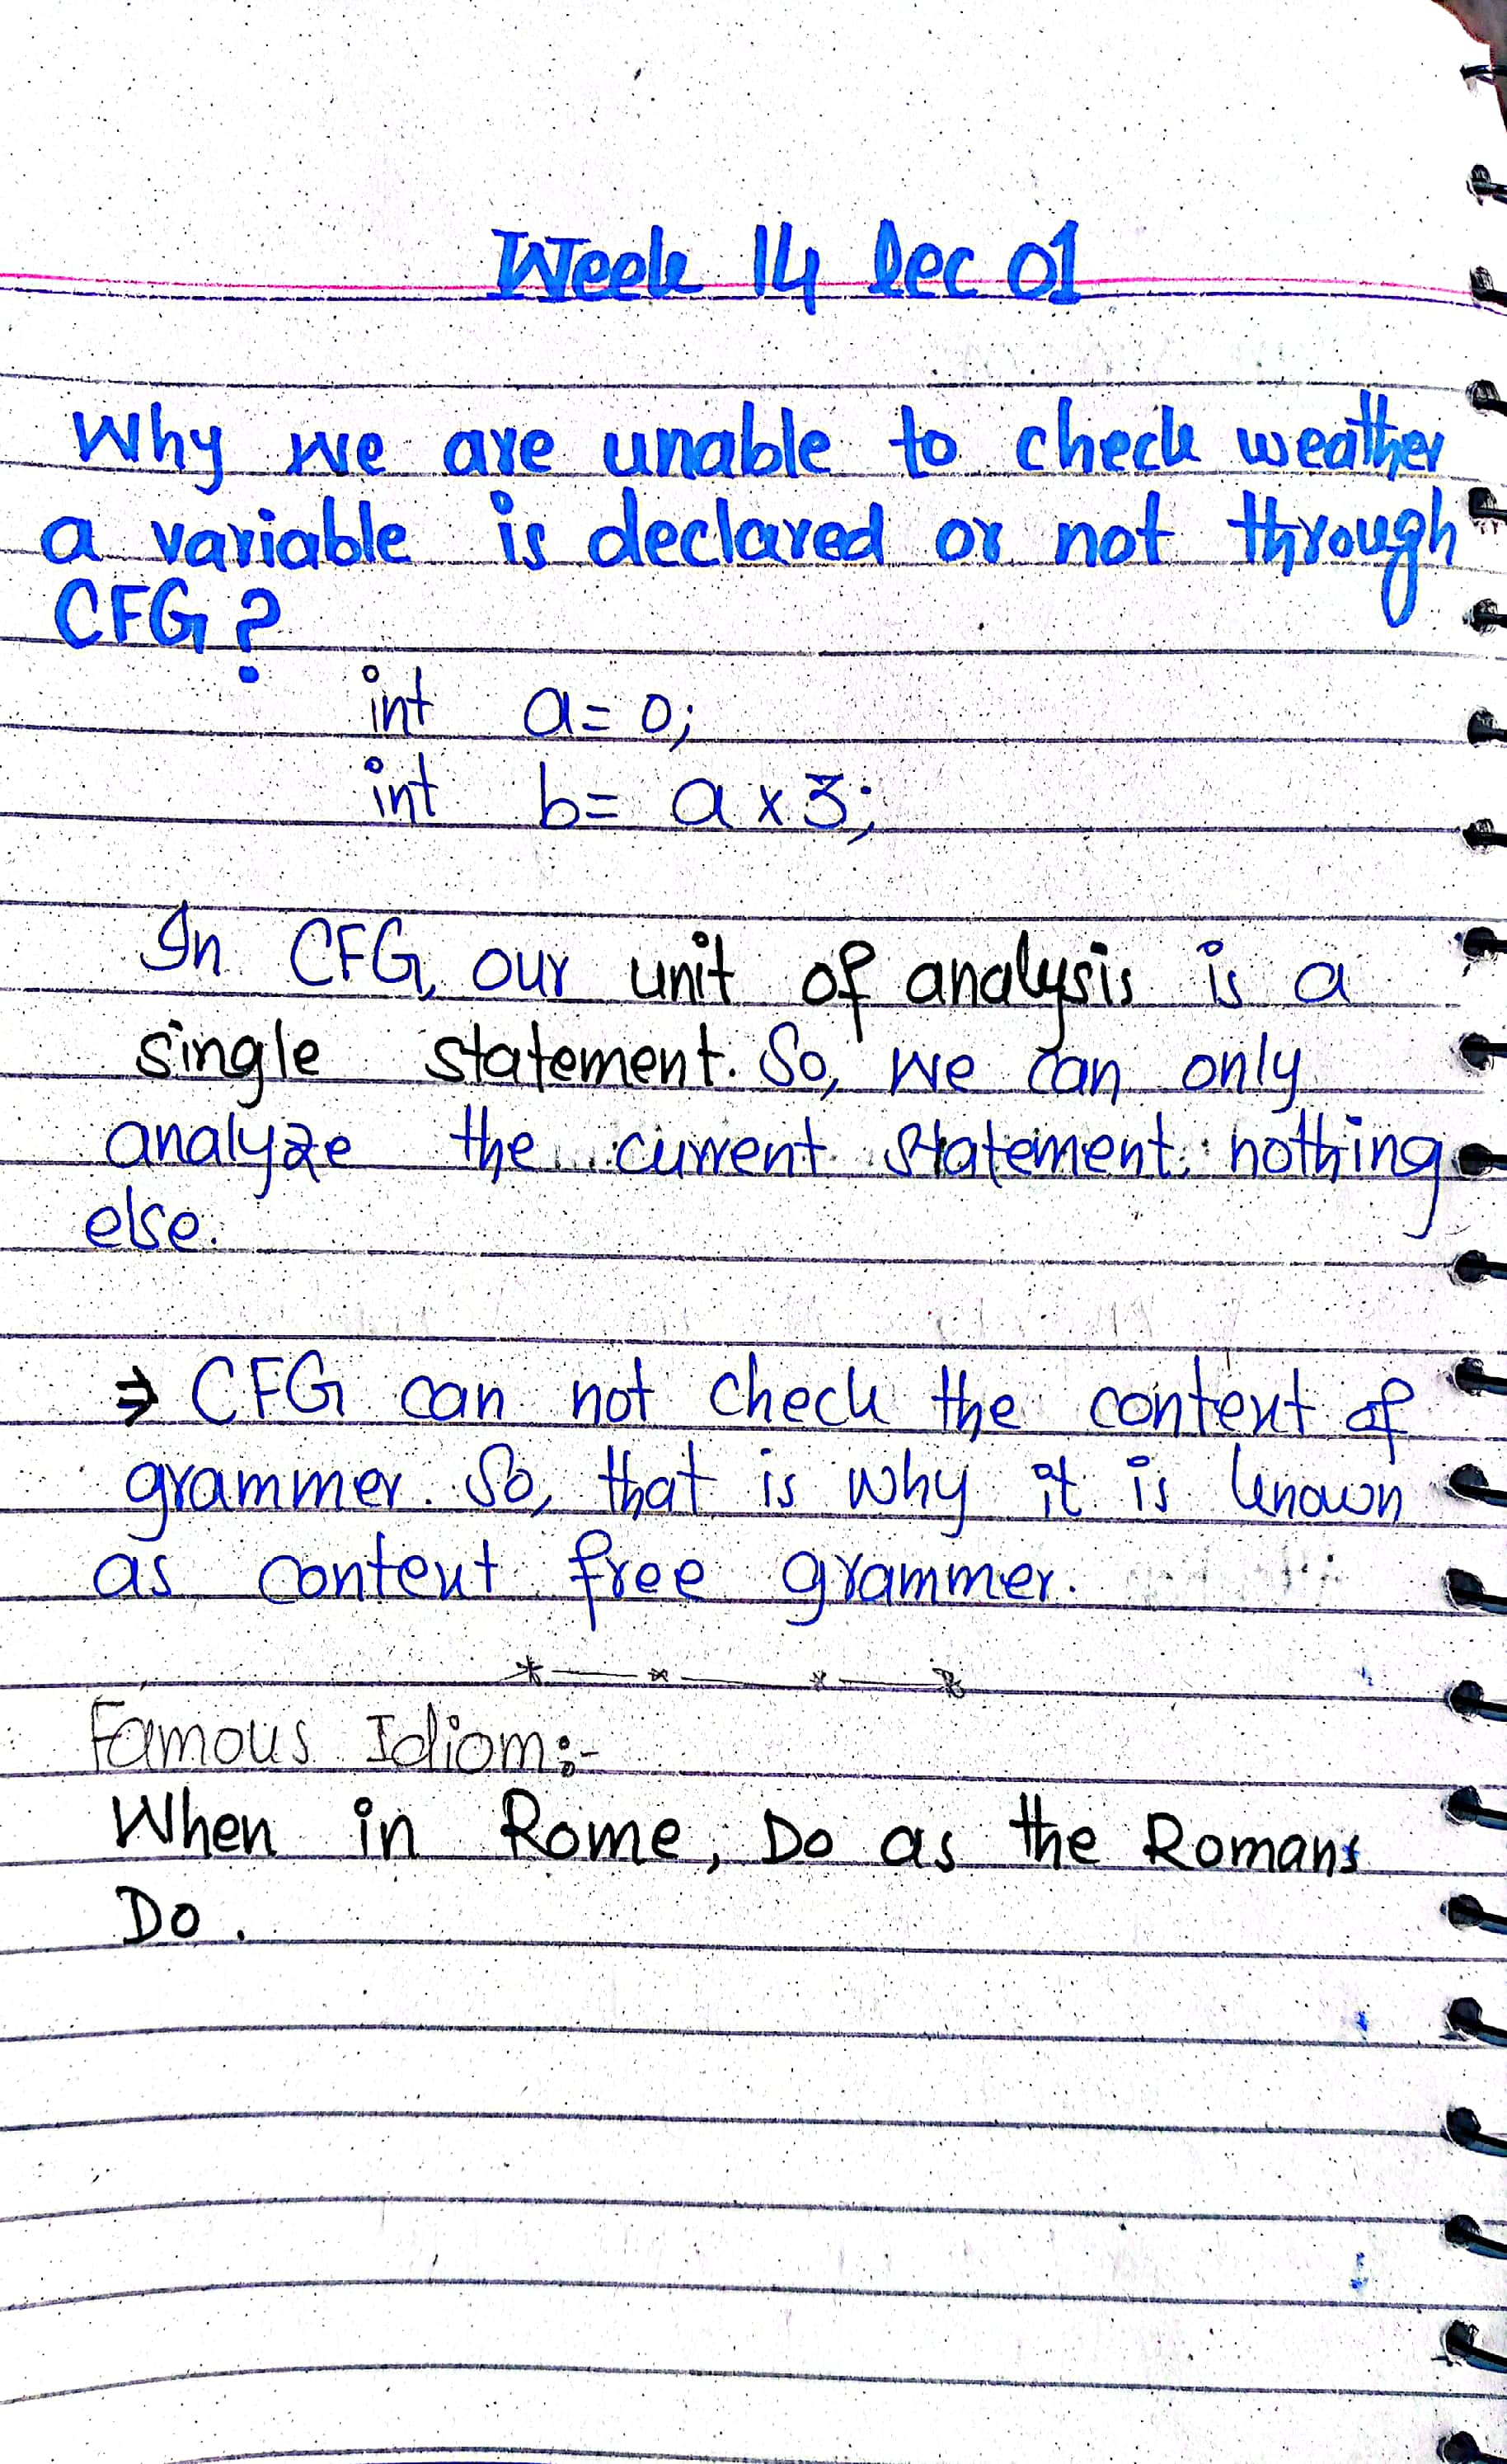 Week 14 Lec 01
Why we are unable to check weather
a variable is declared or not through
CFG?
int a = 0;
int b = a x 3;
In CFG, our unit of analysis is a
single statement. So, we can only
analyze the current statement nothing
else.
⇒ CFG can not check the context of
grammer. So, that is why it is known
as context free grammer.
Famous Idiom:-
When in Rome, Do as the Romans
Do.